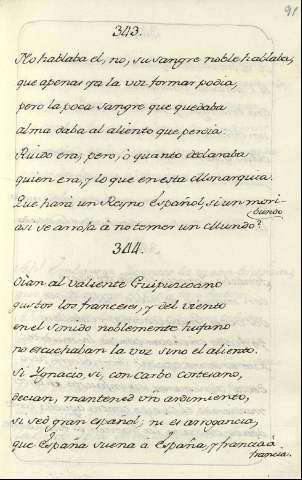 91
343.
No hablaba el, no, su sangre noble hablaba,
que apenas ya la voz formar podia,
pero la poca sangre que quedaba
alma daba al aliento que perdia
Ruido era; pero, ò quanto declaraba
quien era, y lo que en esta Monarquia.
Que hará un Reyno Español, si un mori-
bundo
asi se arroja á no temer un Mundo?
344.
Oian al valiente Guipuzcoano
gustos los franceses, y del viento
en el sonido noblemente hispano
no escuchaban la voz sino el aliento.
Si Ygnacio, si, con garbo cortesano,
decian, mantened vro ardimiento,
si sed gran español; ni es arrogancia,
que España suena à España, y francia à
francia.